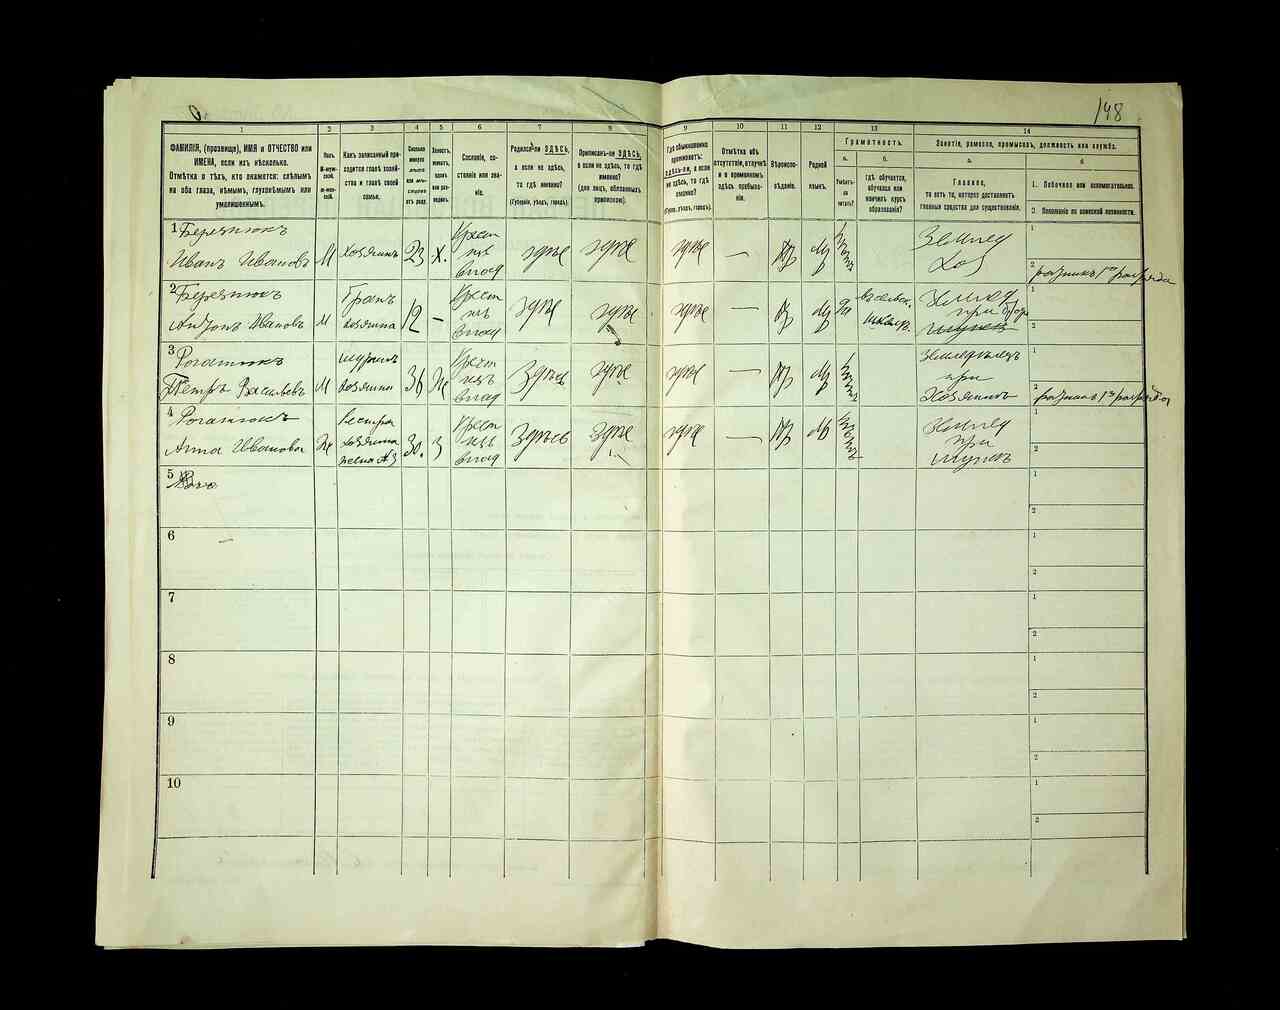 148
1
2
3
4
5
6
7
8
9
10
11
12
13
14
ФАМИЛІЯ, (прозвище), ИМЯ и ОТЧЕСТВО или
ИМЕНА, если ихъ нѣсколько.
Отмѣтка о тѣхъ, кто окажется: слѣпымъ
на оба глаза, нѣмымъ, глухонѣмымъ или
умалишеннымъ.
Полъ.
М-муж-
ской.
Ж-жен-
скій.
Какъ записанный при-
ходится главѣ хозяй-
ства и главѣ своей
семьи.
Сколько
минуло
лѣтъ
или мѣ-
сяцевъ
отъ роду.
Холостъ,
женатъ,
вдовъ
или раз-
веденъ.
Сословіе, со-
стояніе или зва-
ніе.
Родился-ли ЗДѢСЬ,
а если не здѣсь,
то гдѣ именно?
(Губернія, уѣздъ, городъ).
Приписанъ-ли ЗДѢСЬ,
а если не здѣсь, то гдѣ
именно?
(для лицъ, обязанныхъ
припиской).
Гдѣ обыкновенно
проживаетъ:
здѣсь-ли, а если
не здѣсь, то гдѣ
именно?
(Губ., уѣздъ, городъ).
Отмѣтка объ
отсутствіи, отлучкѣ
и о временномъ
здѣсь пребыва-
ніи.
Вѣроиспо-
вѣданіе.
Родной
языкъ.
Грамотность.
а.
Умѣетъ-
ли
читать?
б.
гдѣ обучается,
обучался или
кончилъ курсъ
образованія?
Занятіе, ремесло, промыселъ, должность или служба.
а.
Главное,
то есть то, которое доставляетъ
главныя средства для существованія.
б
1. Побочное или вспомогательное.
2. Положеніе по воинской повинности.
1 Березнюкъ
Иванъ Ивановъ
М
хозяинъ
23
Х.
Крест
изъ
влад
здѣсь
здѣсь
здѣсь
—
Пр
Мр
Землед
Хоз
1
2
ратникъ 1го разряда
2 Березнюкъ
Антонъ Ивановъ
М
Братъ
хозяина
12
—
Крест
изъ
влад
здѣсь
здѣсь
здѣсь
—
Пр
Мр
Да
въ сельск.
школѣ
Землед
при
1
2
3 Рогатюкъ
Петръ Васильевъ
М
шуринъ
хозяина
36
Ж
Крест
изъ
влад
Здѣсь
здѣсь
здѣсь
—
Пр
Мр
Земледѣлецъ
при
Хозяинѣ
1
2
ратникъ 1го разряда
4 Рогатюкъ
Анна Иванова
Ж
сестра
хозяина
жена №3
30.
З
Крест
изъ
влад
Здѣсь
Здѣсь
здѣсь
—
Пр
Мр
Землед
при
мужѣ
1
2
5
1
2
6
1
2
7
1
2
8
1
2
9
1
2
10
1
2